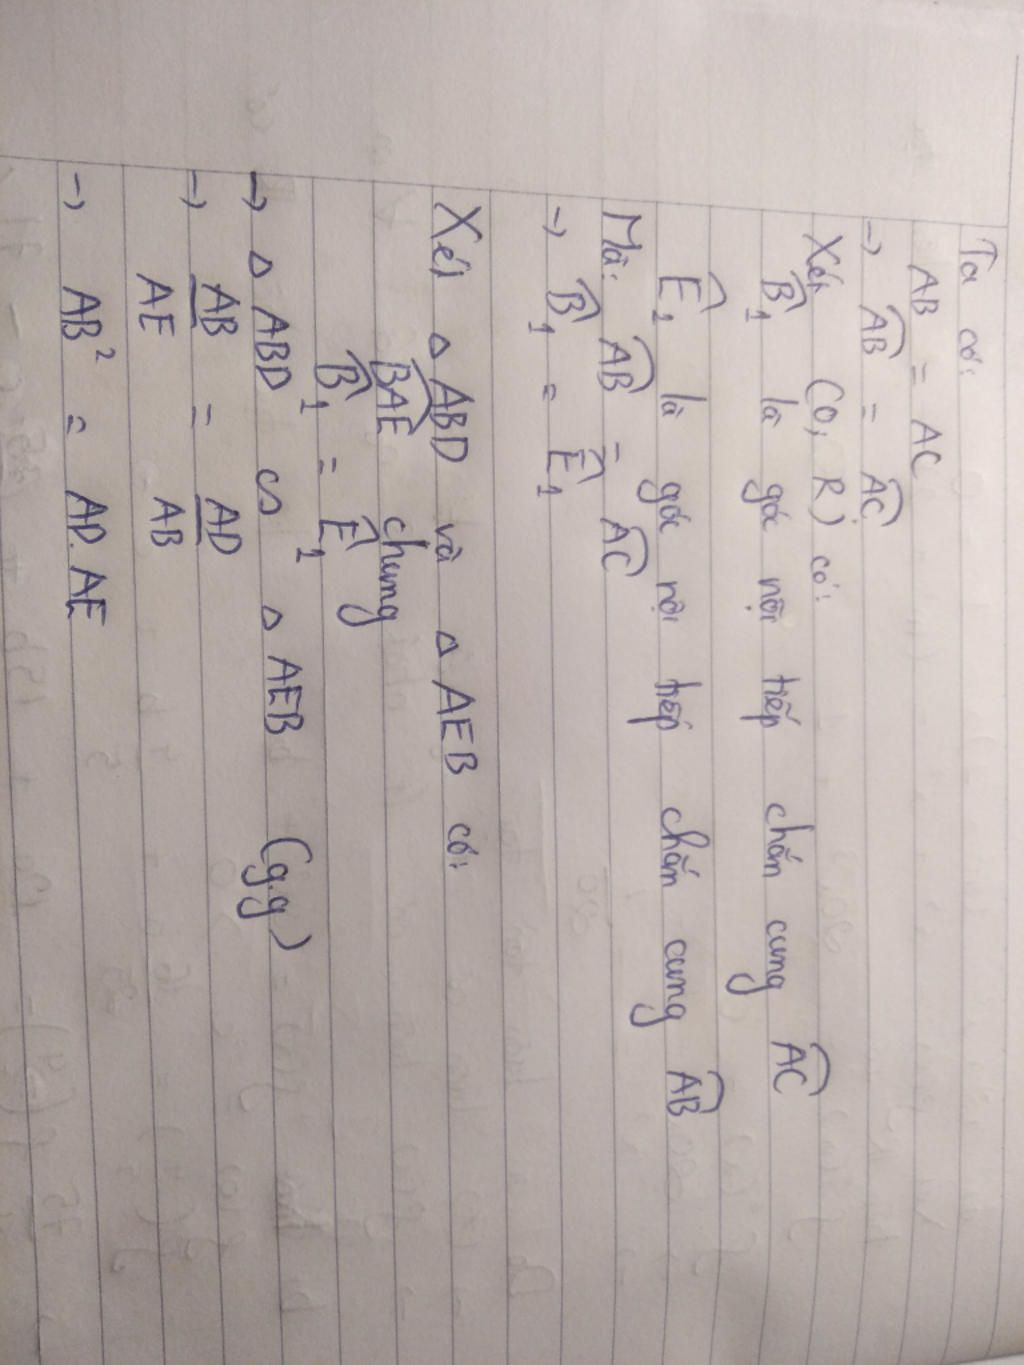 Ta có:
AB = AC
→ \widehat{AB} = \widehat{AC}
Xét (O; R) có:
\widehat{B}₁ là góc nội tiếp chắn cung \widehat{AC}
\widehat{E}₁ là góc nội tiếp chắn cung \widehat{AB}
Mà: \widehat{AB} = \widehat{AC}
→ \widehat{B}₁ = \widehat{E}₁
Xét △ ABD và △ AEB có:
\widehat{BAE} chung
\widehat{B}₁ = \widehat{E}₁
→ △ ABD ∽ △ AEB (g.g)
→ AB/AE = AD/AB
→ AB² = AD.AE